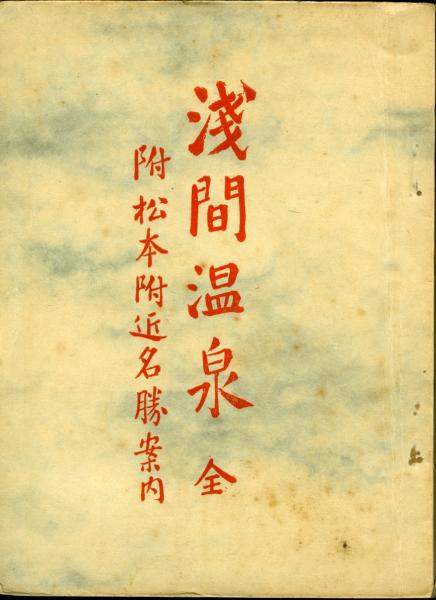 淺間温泉 全
附 松本附近名勝案内